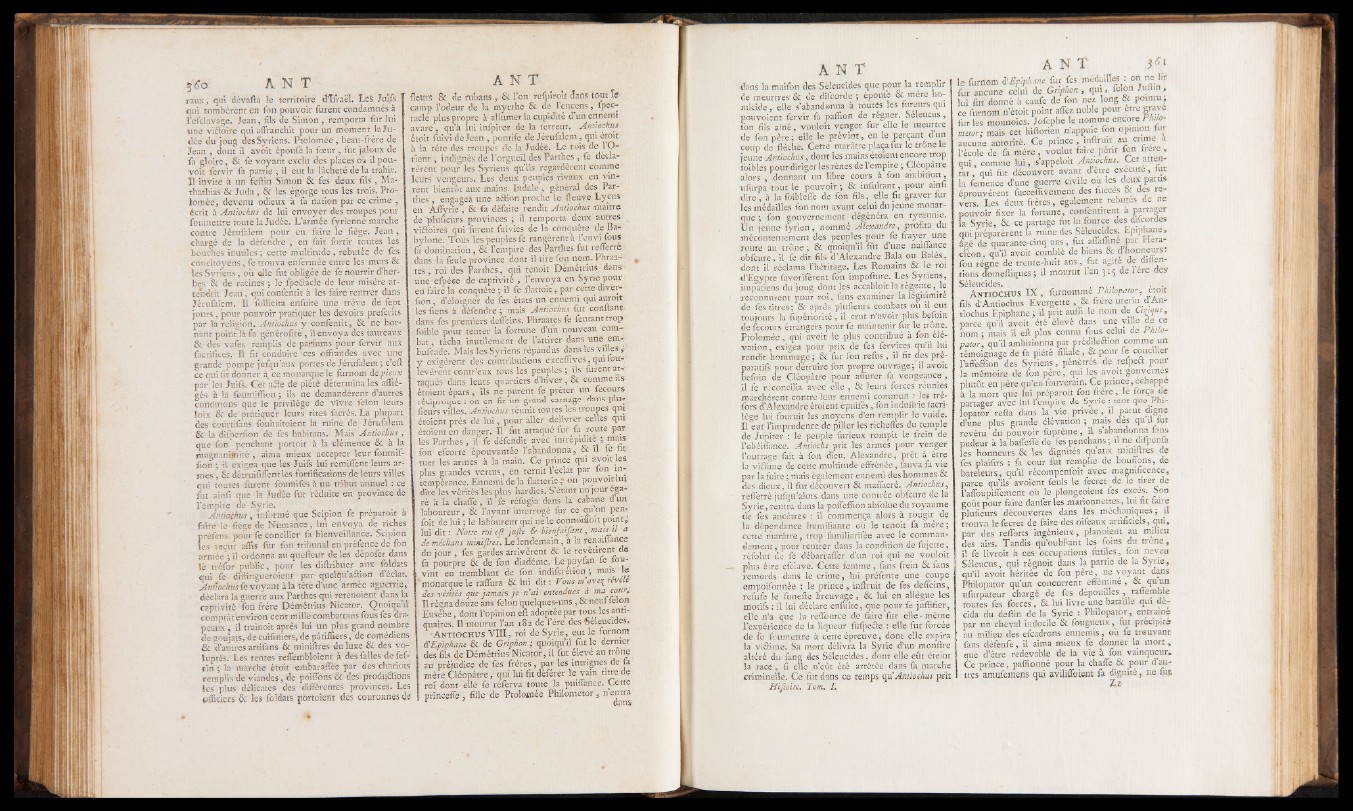 360 A N T
raux, qui dévasta le territoire d'Israël. Les Juifs
qui tombèrent en son pouvoir furent condamnés à
l'esclavage. Jean, fils de Simon, remporta sur lui
une victoire qui affranchit pour un moment la Ju-
dée du joug des Syriens. Ptolomée, beau-frère de
Jean, dont il avoit épousé la sœur, fut jaloux de
sa gloire, & se voyant exclu des places où il pou-
voit servir sa patrie, il eut la lâcheté de la trahir.
Il invite à un festin Simon & ses deux fils, Ma-
thathias & Juda, & les égorge tous les trois. Pto-
lomée, devenu odieux à sa nation par ce crime,
écrit à Antiochus de lui envoyer des troupes pour
soumettre toute la Judée. L'armée syrienne marche
contre Jérusalem pour en faire le siége. Jean,
chargé de la défendre, en fait sortir toutes les
bouches inutiles; cette multitude, rebutée de ses
concitoyens, se trouva enfermée entre les murs &
les Syriens, où elle fut obligée de se nourrir d'her-
bes & de racines; le spectacle de leur misère at-
tendrit Jean, qui consentit à les faire rentrer dans
Jérusalem. Il sollicita ensuite une trève de sept
jours, pour pouvoir pratiquer les devoirs prescrits
par la religion. Antiochus y consentit, & ne bor-
nant point là sa générosité, il envoya des taureaux
& des vases remplis de parfums pour servir aux
sacrifices. Il fit conduire ces offrandes avec une
grande pompe jusqu'aux portes de Jérusalem; c'est
ce qui fit donner à ce monarque le surnom de pieux
par les Juifs. Cet acte de piété détermina les assié-
gés à la soumission; ils ne demandèrent d'autres
conditions que le privilège de vivre selon leurs
loix & de pratiquer leurs rites sacrés. La plupart
des courtisans souhaitoient la ruine de Jérusalem
& la dispersion de ses habitans. Mais Antiochus,
que son penchant portoit à la clémence & à la
magnanimité, aima mieux accepter leur soumis-
sion; il exigea que les Juifs lui remissent leurs ar-
mes, & détruisissent les fortifications de leurs villes
qui toutes furent soumises à un tribut annuel: ce
fut ainsi que la Judée fut réduite en province de
l'empire de Syrie.
Antiochus, informé que Scipion se préparoit à
faire le siège de Numance, lui envoya de riches
présens pour se concilier sa bienveillance. Scipion
les reçut assis sur son tribunal en présence de son
armée; il ordonna au questeur de les déposer dans
le trésor public, pour les distribuer aux soldats
qui se distingueroient par quelqu'action d'éclat.
Antiochus se voyant à la tête d'une armée aguerrie,
déclara la guerre aux Parthes qui retenoient dans la
captivité son frère Démétrius Nicator. Quoiqu'il
comptât environ cent mille combattans sous ses dra-
peaux, il traînoit après lui un plus grand nombre
de goujats, de cuisiniers, de pâtissiers, de comédiens
& d'autres artisans & ministres du luxe & des vo-
luptés. Les tentes ressembloient à des salles de fes-
tin; la marche étoit embarassée par des chariots
remplis de viandes, de poissons & des productions
les plus délicates des différentes provinces. Les
officiers & les soldats portoient des couronnes de
A N T
fleurs & de rubans, & l'on respiroit dans tout le
camp l'odeur de la myrrhe & de l'encens, spec-
tacle plus propre à allumer la cupidité d'un ennemi
avare, qu'à lui inspirer de la terreur. Antiochus
étoit suivi de Jean, pontife de Jérusalem, qui étoit
à la tête des troupes de la Judée. Le rois de l'O-
rient, indignés de l'orgueil des Parthes, se décla-
rèrent pour les Syriens qu'ils regardèrent comme
leurs vengeurs. Les deux peuples rivaux en vin-
rent bientôt aux mains. Indate, général des Par-
thes, engagea une action proche le fleuve Lycus
en Assyrie, & sa défaite rendit Antiochus maître
de plusieurs provinces; il remporta deux autres
victoires qui furent suivies de la conquête de Ba-
bylone. Tous les peuples se rangèrent à l'envi sous
sa domination, & l'empire des Parthes fut resserré
dans la seule province dont il tire son nom. Phraa-
tes, roi des Parthes, qui tenoit Démétrius dans
une espèce de captivité, l'envoya en Syrie pour
en faire la conquête; il se flattoit, par cette diver-
sion, d'éloigner de ses états un ennemi qui auroit
les siens à défendre; mais Antiochus fut constant
dans ses premiers desseins. Phraates se sentant trop
foible pour tenter la fortune d'un nouveau com-
bat, tâcha inutilement de l'attirer dans une em-
buscade. Mais les Syriens répandus dans les villes,
y exigèrent des contributions excessives, qui sou-
levèrent contr'eux tous les peuples; ils furent at-
taqués dans leurs quartiers d'hiver, & comme ils
étoient épars, ils ne purent se prêter un secours
réciproque: on en fit un grand carnage dans plu-
sieurs villes. Antiochus réunit toutes les troupes qui
étoient près de lui, pour aller délivrer celles qui
étoient en danger. Il fut attaqué sur sa route par
les Parthes, il se défendit avec intrépidité; mais
son escorte épouvantée l'abandonna, & il se fit
tuer les armes à la main. Ce prince qui avoit les
plus grandes vertus, en ternit l'éclat par son in-
tempérance. Ennemi de la flatterie; on pouvoit lui
dire les vérités les plus hardies. S'étant un jour éga-
ré à la chasse, il se réfugia dans la cabane d'un
laboureur, & l'ayant interrogé sur ce qu'on pen-
soit de lui; le laboureur qui ne le connoissoit point,
lui dit: Notre roi est juste & bienfaisant, mais il a
de méchans ministres. Le lendemain, à la renaissance
du jour, ses gardes arrivèrent & le revêtirent de
sa pourpre & de son diadême. Le paysan se sou-
vint en tremblant de son indiscrétion; mais le
monarque le rassura & lui dit: Vous m'avez révélé
des vérités que jamais je n'ai entendues à ma cour.
Il régna douze ans selon quelques-uns, & neuf selon
Eusèbe, dont l'opinion est adoptée par tous les anti-
quaires. Il mourut l'an 182 de l'ère des Séleucides.
ANTIOCHUS VIII, roi de Syrie, eut le surnom
d'Epiphane & de Griphon; quoiqu'il fût le dernier
des fils de Démétrius Nicator, il fut élevé au trône
au préjudice de ses frères, par les intrigues de sa
mère Cléopâtre, qui lui fit déférer le vain titre de
roi dont elle se réserva toute la puissance. Cette
princesse, fille de Ptolomée Philométor, n'entra
dans
A N T
dans la maison des Séleucides que pour la remplir
de meurtres & de discorde; épouse & mère ho-
micide, elle s'abandonna à toutes les fureurs qui
pouvoient servir sa passion de régner. Séleucus,
son fils aîné, vouloit venger sur elle le meurtre
de son père; elle le prévint, en le perçant d'un
coup de flèche. Cette marâtre plaça sur le trône le
jeune Antiochus, dont les mains étoient encore trop
foibles pour diriger les rênes de l'empire; Cléopâtre
alors, donnant un libre cours à son ambition,
usurpa tout le pouvoir; & insultant, pour ainsi
dire, à la foiblesse de son fils, elle fit graver sur
les médailles son nom avant celui du jeune monar-
que; son gouvernement dégénéra en tyrannie.
Un jeune syrien, nommé Alexandre, profita du
mécontentement des peuples pour se frayer une
route au trône; & quoiqu'il fût d'une naissance
obscure, il se dit fils d'Alexandre Bala ou Balès,
dont il réclama l'héritage. Les Romains & le roi
d'Egypte favorisèrent son imposture. Les Syriens,
impatiens du joug dont les accabloit la régente, le
reconnurent pour roi, sans examiner la légitimité
de ses titres; & après plusieurs combats où il eut
toujours la supériorité, il crut n'avoir plus besoin
de secours étrangers pour se maintenir sur le trône.
Ptolomée, qui avoit le plus contribué à son élé-
vation, exigea pour prix de ses services qu'il lui
rendît hommage; & sur son refus, il fit des pré-
paratifs pour détruire son propre ouvrage; il avoit
besoin de Cléopâtre pour assurer sa vengeance,
il se réconcilia avec elle, & leurs forces réunies
marchèrent contre leur ennemi commun: les tré-
sors d'Alexandre étoient épuisés, son industrie sacri-
lége lui fournit les moyens d'en remplir le vuide.
Il eut l'imprudence de piller les richesses du temple
de Jupiter: le peuple furieux rompit le frein de
l'obéissance. Antiochs prit les armes pour venger
l'outrage fait à son dieu. Alexandre, prêt à être
la victime de cette multitude effrénée, sauva sa vie
par la fuite; mais également ennemi des hommes &
des dieux, il fut découvert & massacré. Antiochus,
resserré jusqu'alors dans une contrée obscure de la
Syrie, rentra dans la possession absolue du royaume
de ses ancêtres: il commença alors à rougir de
la dépendance humiliante où le tenoit sa mère;
cette marâtre, trop familiarisée avec le comman-
dement, pour rentrer dans la condition de sujette,
résolut de se débarrasser d'un roi qui ne vouloit
plus être esclave. Cette femme, sans frein & sans
remords dans le crime, lui présente une coupe
empoisonnée: le prince, instruit de ses desseins,
refuse le funeste breuvage, & lui en allègue les
motifs: il lui déclare ensuite, que pour se justifier,
elle n'a que la ressource de faire sur elle-même
l'expérience de la liqueur suspecte: elle fut forcée
de se soumettre à cette épreuve, dont elle expira
la victime. Sa mort délivra la Syrie d'un monstre
altéré du sang des Séleucides, dont elle eût éteint
la race, si elle n'eût été arrêtée dans sa marche
criminelle. Ce fut dans ce temps qu'Antiochus prit
Histoire. Tom. I.
A N T 361
le surnom d'Epiphane sur ses médailles: on ne lit
sur aucune celui de Griphon, qui, selon Justin,
lui fut donné à cause de son nez long & pointu;
ce surnom n'étoit point assez noble pour être gravé
sur les monnoies. Josephe le nomme encore Philo-
métor; mais cet historien n'appuie son opinion sur
aucune autorité. Ce prince, instruit au crime à
l'école de sa mère, voulut faire périr son frère,
qui, comme lui, s'appeloit Antiochus. Cet atten-
tat, qui fut découvert avant d'être exécuté, fut
la semence d'une guerre civile où les deux partis
éprouvèrent successivement des succès & des re-
vers. Les deux frères, également rebutés de ne
pouvoir fixer la fortune, consentirent à partager
la Syrie, & ce partage fut la source des discordes
qui préparèrent la ruine des Séleucides. Epiphane,
âgé de quarante-cinq ans, fut assassiné par Hera-
cléon, qu'il avoit comblé de biens & d'honneurs:
son règne de trente-huit ans, fut agité de dissen-
tions domestiques; il mourut l'an 315 de l'ère des
Séleucides.
ANTIOCHUS IX, surnommé Philopator, étoit
fils d'Antiochus Evergete, & frère uterin d'An-
tiochus Epiphane; il prit aussi le nom de Cizique,
parce qu'il avoit été élevé dans une ville de ce
nom; mais il est plus connu sous celui de Philo-
pator, qu'il ambitionna par prédilection comme un
témoignage de sa piété filiale, & pour se concilier
l'affection des Syriens, pénétrés de respect pour
la mémoire de son père, qui les avoit gouvernés
plutôt en père qu'en souverain. Ce prince, échappé
à la mort que lui préparoit son frère, le força de
partager avec lui l'empire de Syrie: tant que Phi-
lopator resta dans la vie privée, il parut digne
d'une plus grande élévation; mais dès qu'il fut
revêtu du pouvoir suprême, il s'abandonna sans
pudeur à la bassesse de ses penchans; il ne disposa
les honneurs & les dignités qu'aux ministres de
ses plaisirs: sa cour fut remplie de bouffons, de
bateleurs, qu'il récompensoit avec magnificence,
parce qu'ils avoient seuls le secret de le tirer de
l'assoupissement où le plongeoient ses excès. Son
goût pour faire danser les marionnettes, lui fit faire
plusieurs découvertes dans les méchaniques; il
trouva le secret de faire des oiseaux artificiels, qui,
par des ressorts ingénieux, planoient au milieu
des airs. Tandis qu'oubliant les soins du trône,
il se livroit à ces occupations futiles, son neveu
Séleucus, qui régnoit dans la partie de la Syrie,
qu'il avoit héritée de son père, ne voyant dans
Philopator qu'un concurrent efféminé, & qu'un
usurpateur chargé de ses dépouilles, rassemble
toutes ses forces, & lui livre une bataille qui dé-
cida du destin de la Syrie: Philopator, entraîné
par un cheval indocile & fougueux, fut précipité
au milieu des escadrons ennemis, où se trouvant
sans défense, il aima mieux se donner la mort,
que d'être redevable de la vie à son vainqueur.
Ce prince, passionné pour la chasse & pour d'au-
tres amusemens qui avilissoient sa dignité, ne fut
Zz